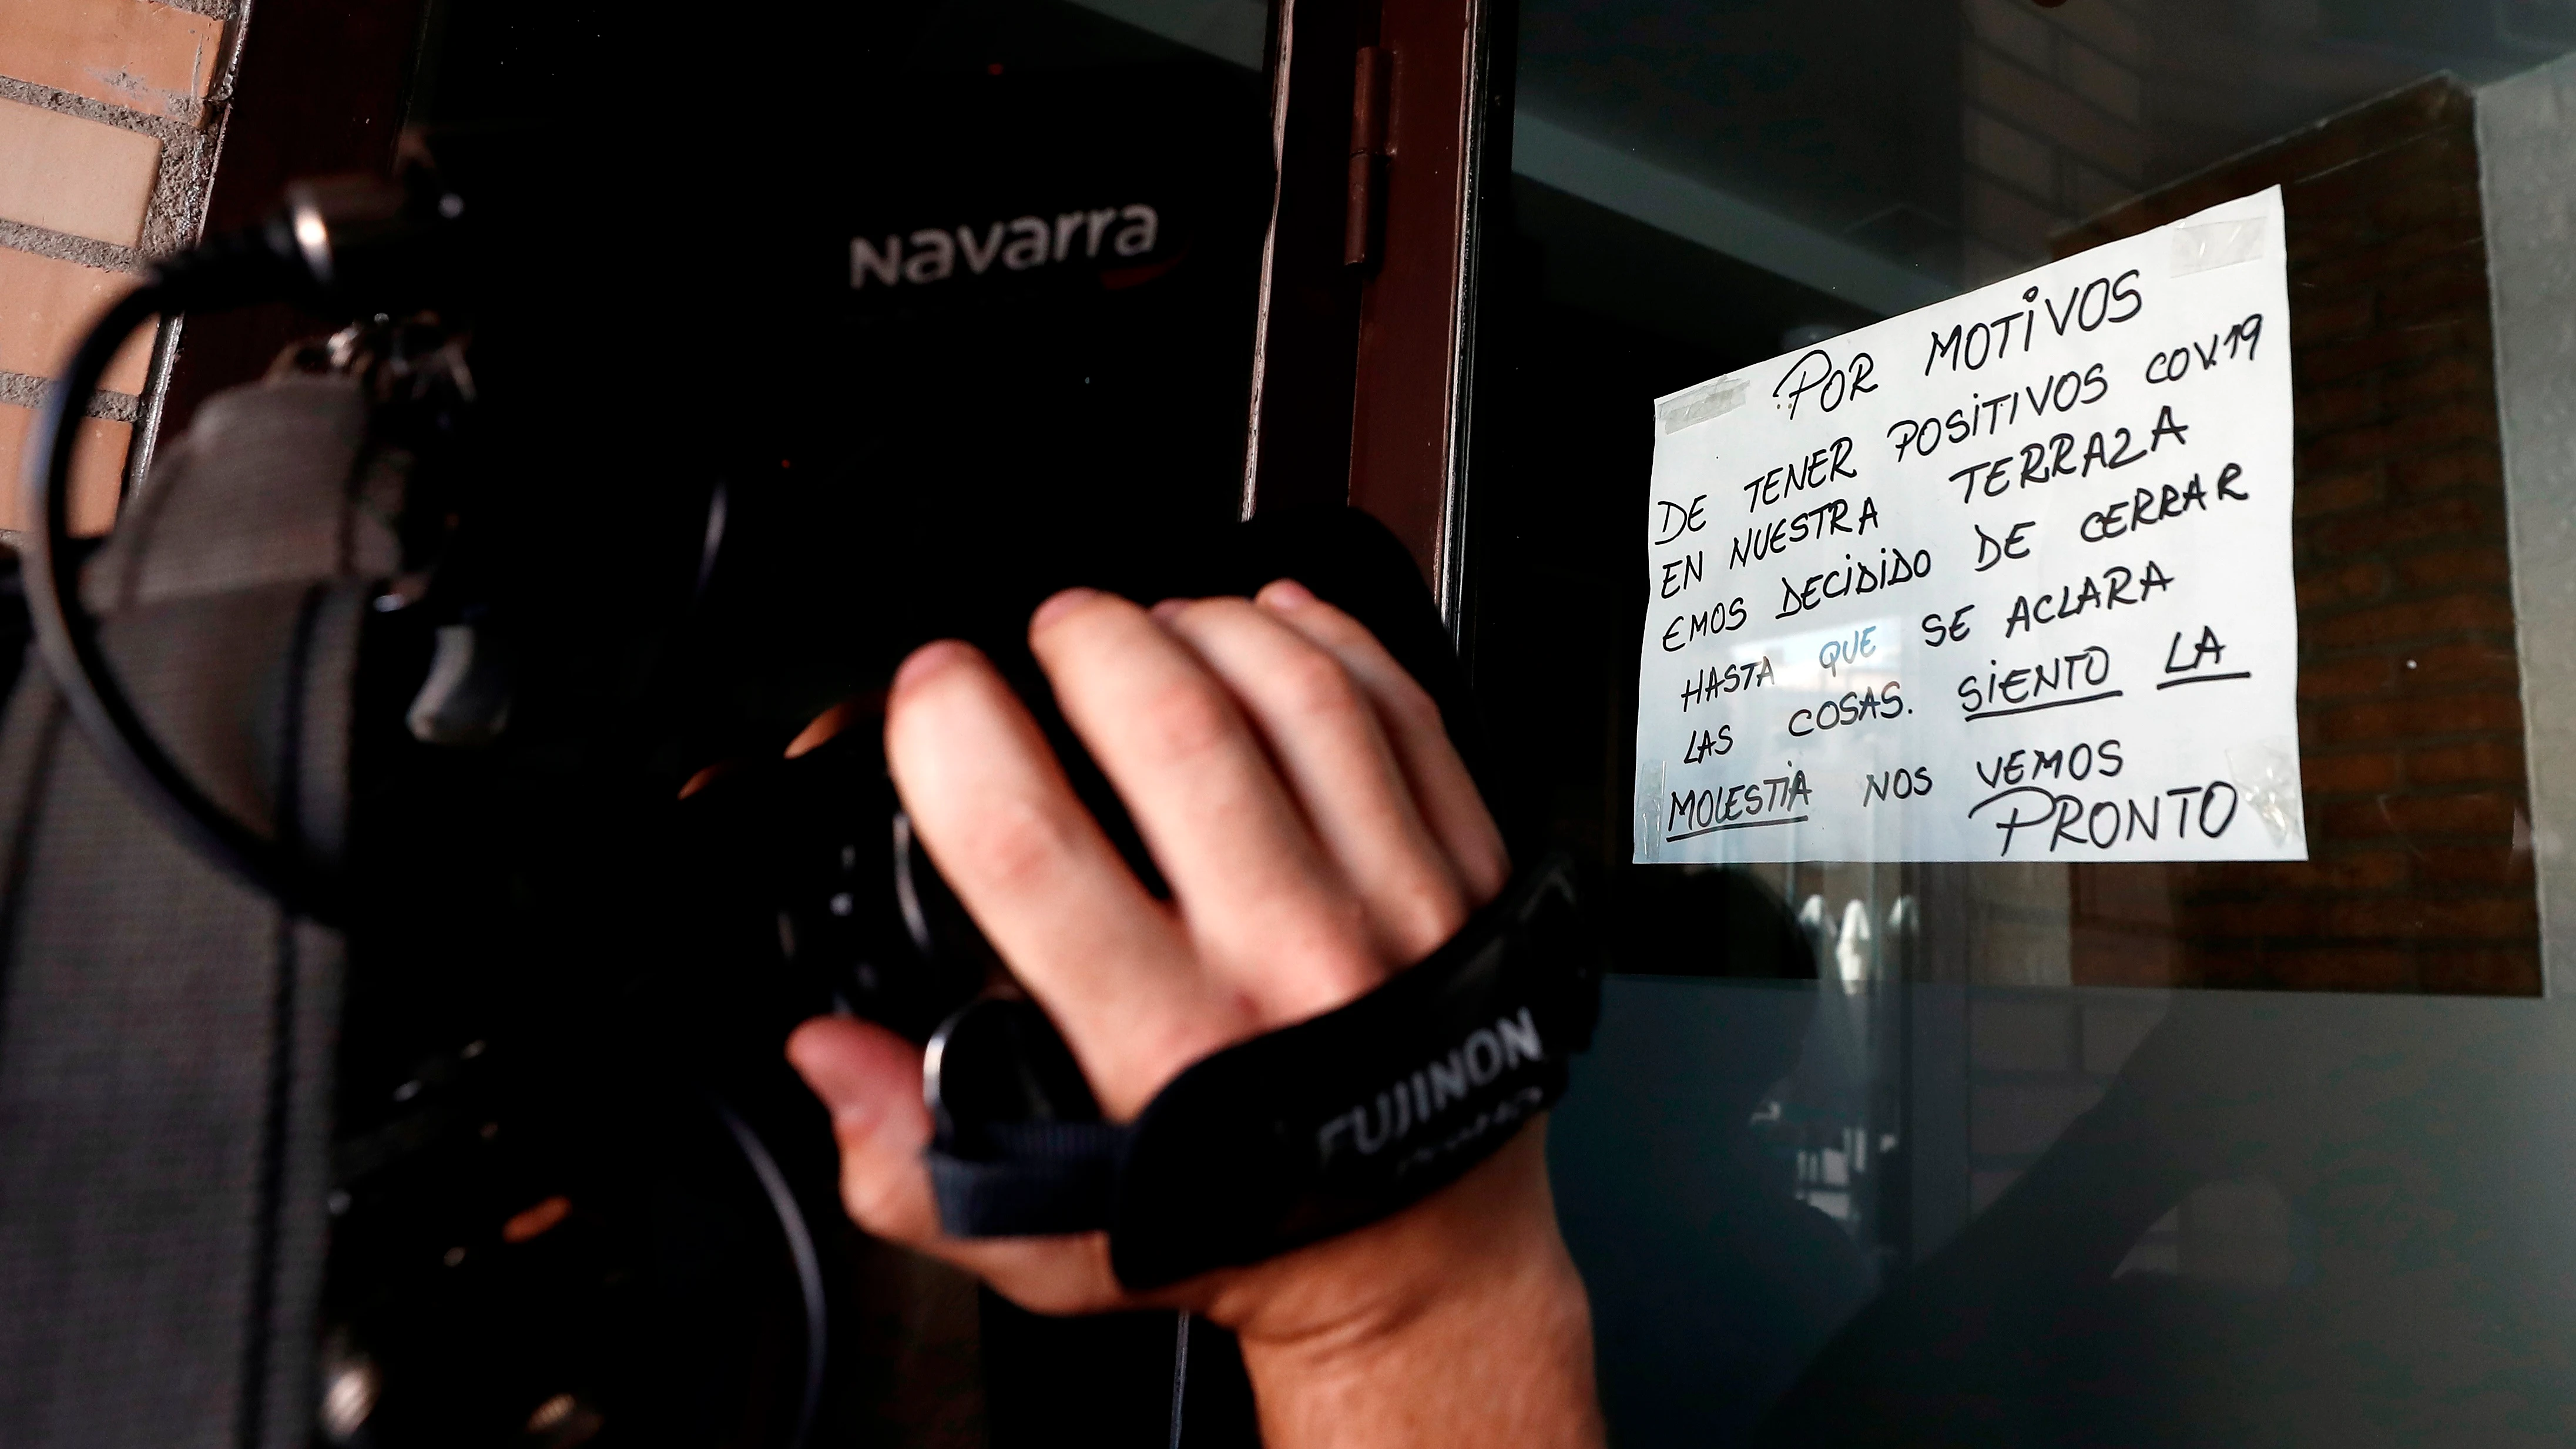 Navarra
POR MOTIVOS
DE TENER POSITIVOS COV.19
EN NUESTRA TERRAZA
EMOS DECIDIDO DE CERRAR
HASTA QUE SE ACLARA
LAS COSAS. SIENTO LA
MOLESTIA NOS VEMOS
PRONTO
FUJINON